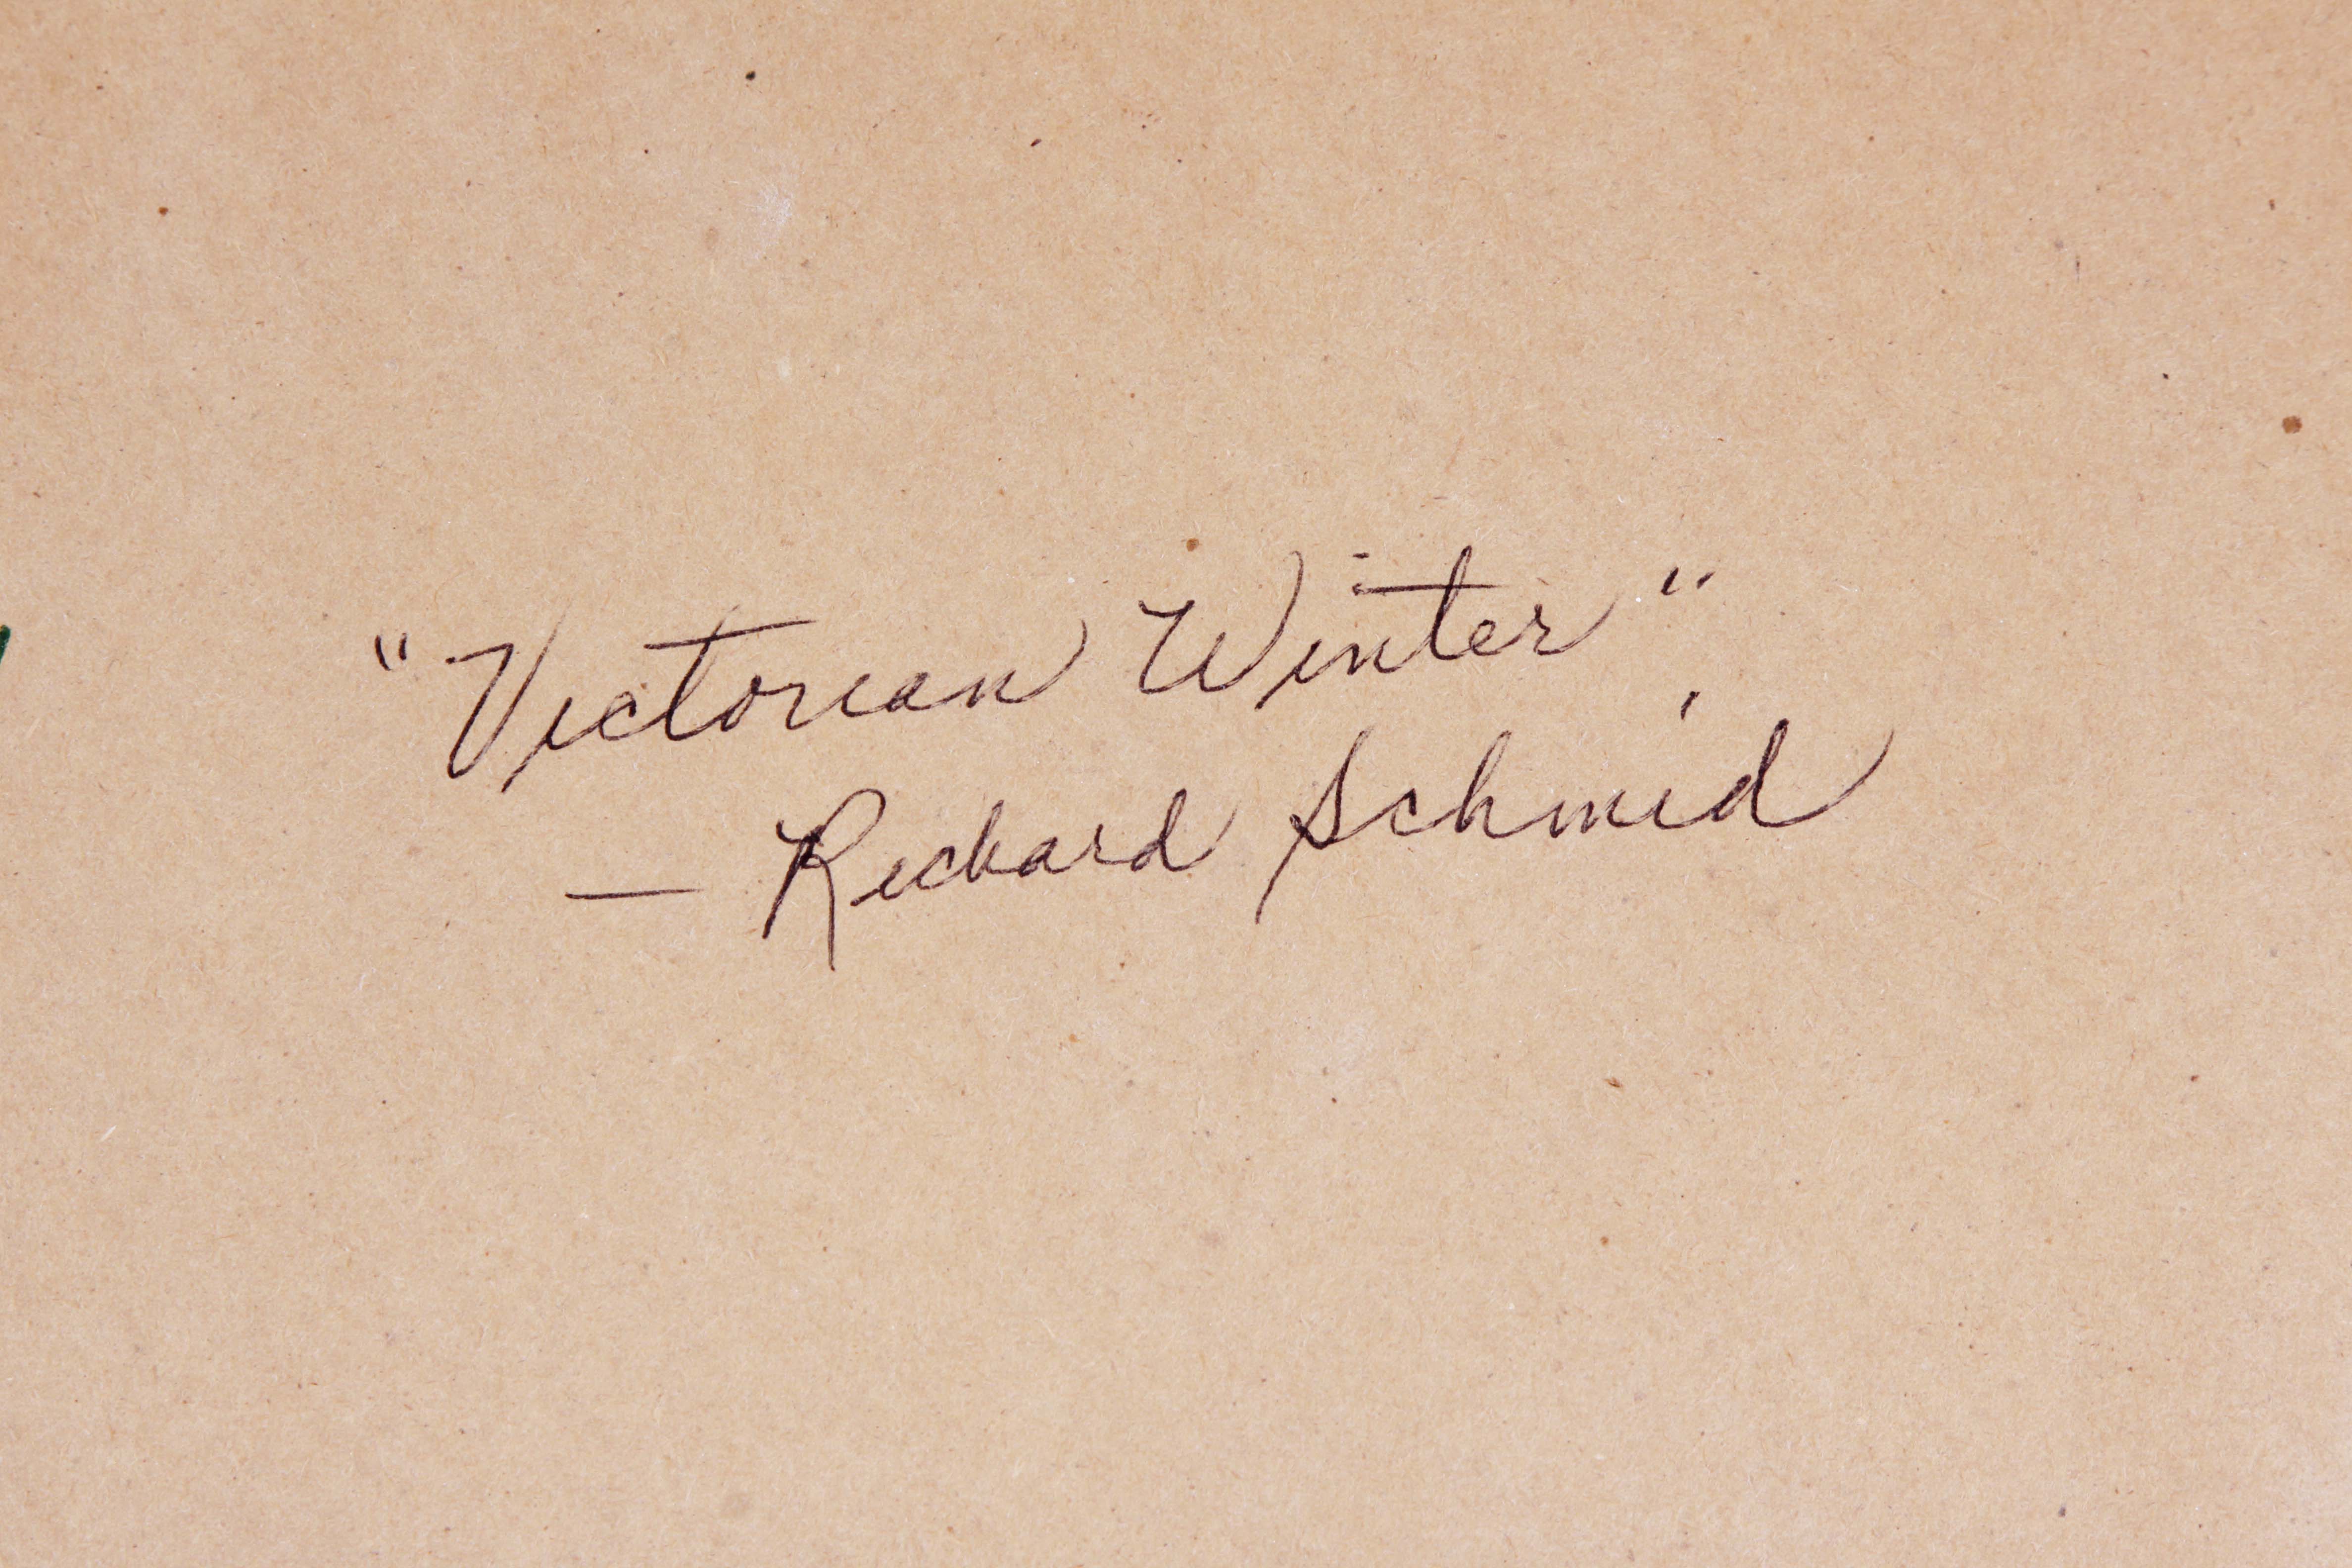 "Victorian Winter"
— Richard Schmid